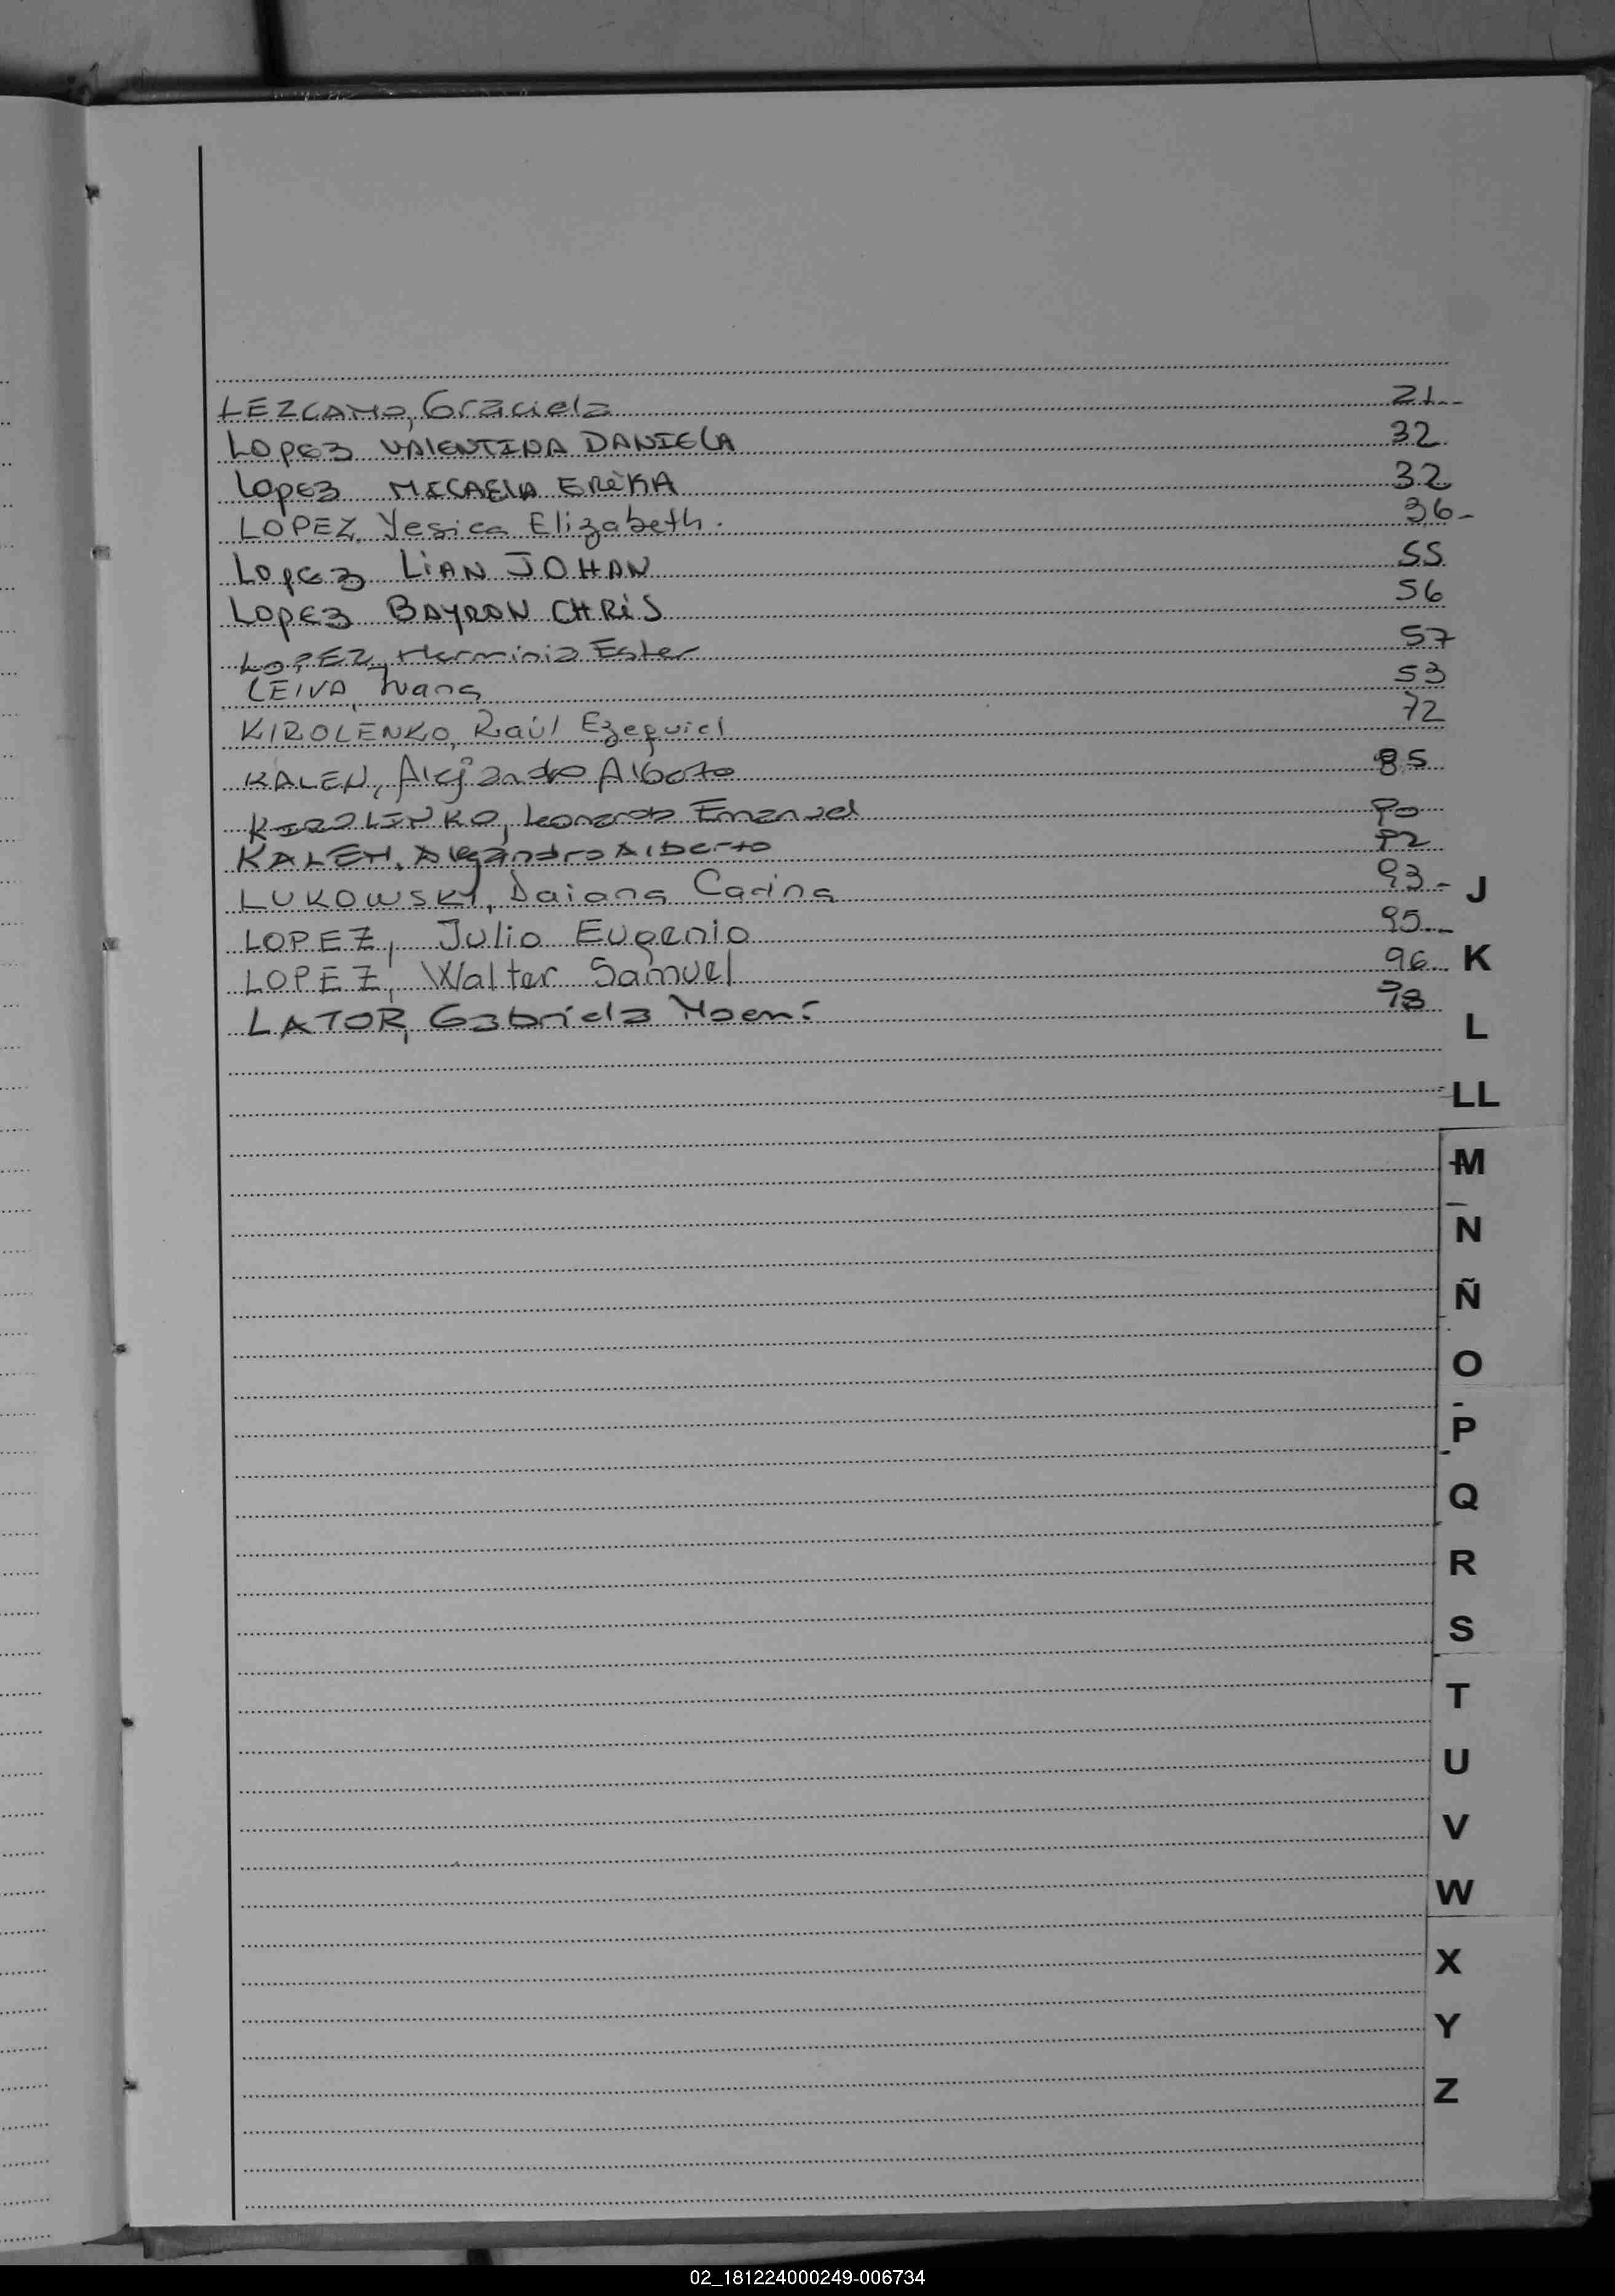 LEZCANO, Graciela 21
LOPEZ VALENTINA DANIELA 32
LOPEZ MICAELA ERIKA 32
LOPEZ, Yesica Elizabeth. 36
LOPEZ LIAN JOHAN 55
LOPEZ BAYRON CHRIS 56
LOPEZ, Herminia Ester 57
LEIVA, Ivana 53
KIROLENKO, Raúl Ezequiel 72
KALEN, Alejandro Alberto 85
KIROLINKO, Leonardo Emanuel 90
KALEN, Alejandro Alberto 92
LUKOWSKY, Daiana Carina 93
J
LOPEZ, Julio Eugenio 95
LOPEZ, Walter Samuel 96
K
LATOR, Gabriela Noemí 98
L
LL
M
N
Ñ
O
P
Q
R
S
T
U
V
W
X
Y
Z
02_181224000249-006734